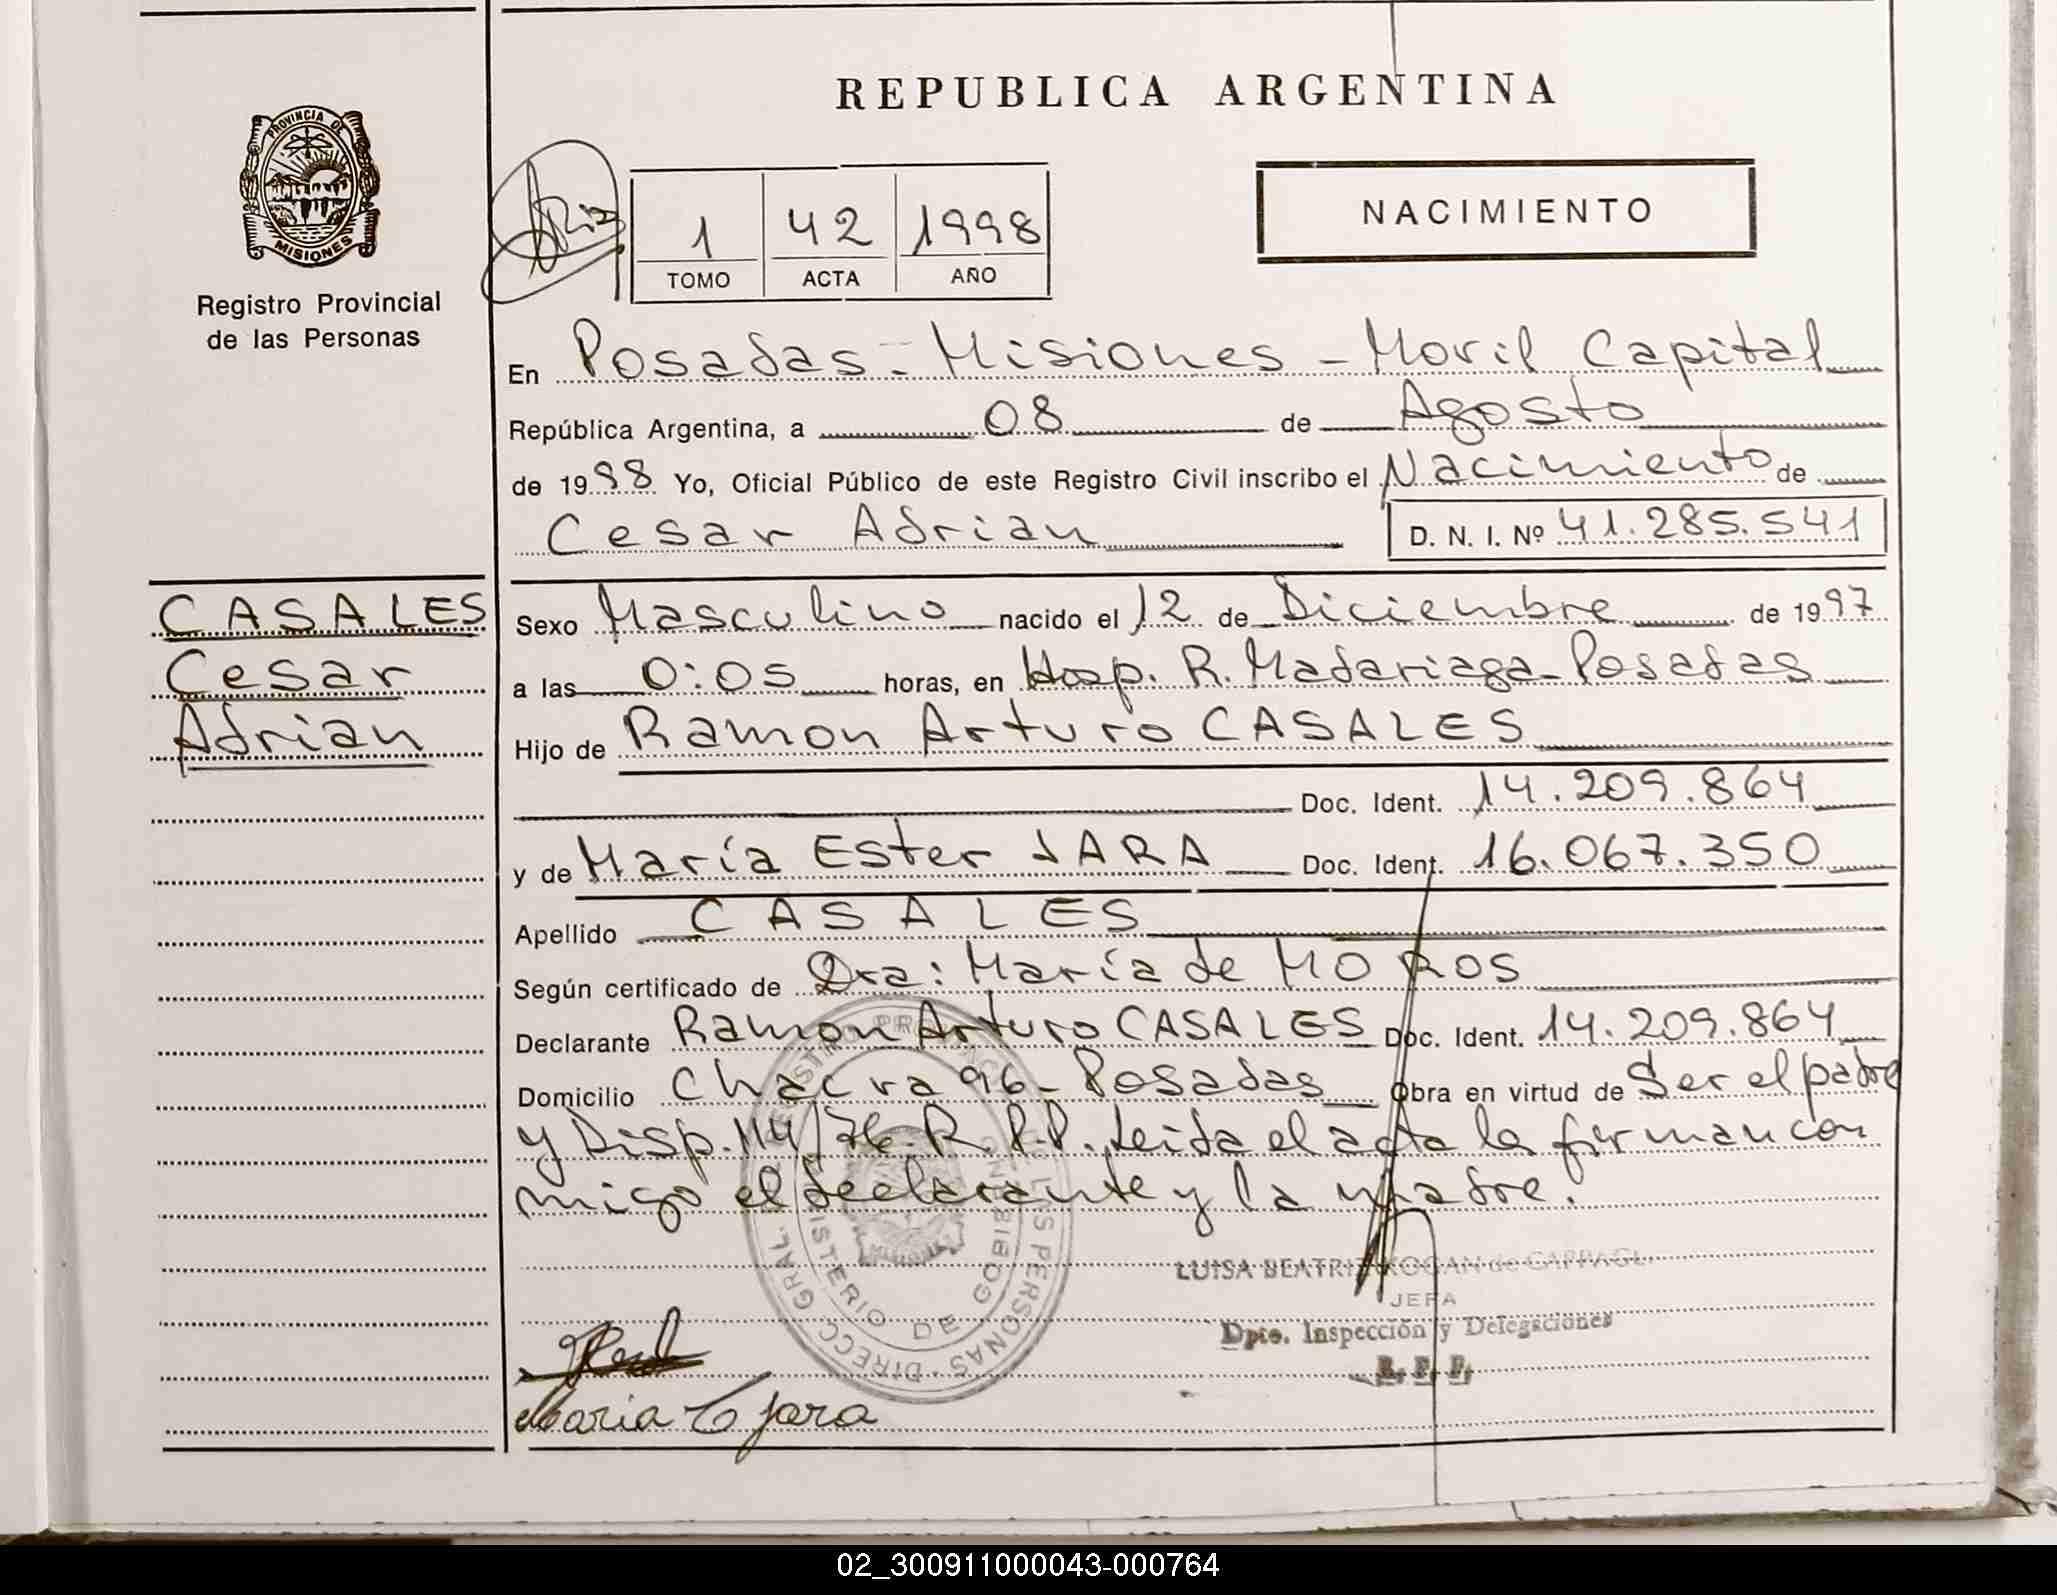 REPUBLICA ARGENTINA
PROVINCIA DE
MISIONES
Registro Provincial
de las Personas
1 42 1998
TOMO ACTA AÑO
NACIMIENTO
En Posadas - Misiones - Movil Capital
República Argentina, a 08 de Agosto
de 1998 Yo, Oficial Público de este Registro Civil inscribo el Nacimiento de
Cesar Adrian D. N. I. Nº 41.285.541
CASALES
Cesar
Adrian
Sexo Masculino nacido el 12 de Diciembre de 1997
a las 0:05 horas, en Hosp. R. Madariaga - Posadas
Hijo de Ramon Arturo CASALES
Doc. Ident. 14.209.864
y de María Ester JARA Doc. Ident. 16.067.350
Apellido CASALES
Según certificado de Dra: María de MOROS
Declarante Ramon Arturo CASALES Doc. Ident. 14.209.864
Domicilio Chacra 96 - Posadas Obra en virtud de Ser el padre
y Disp. 114/76 - R. P. P. Leida el acta la firman con
migo el declarante y la madre.
DIRECC. GRAL. REGISTRO PROVINCIAL DE LAS PERSONAS
MINISTERIO DE GOBIERNO
LUISA BEATRIZ KOGAN de
JEFA
Dpto. Inspección y Delegaciones
Maria E Jara
02_300911000043-000764